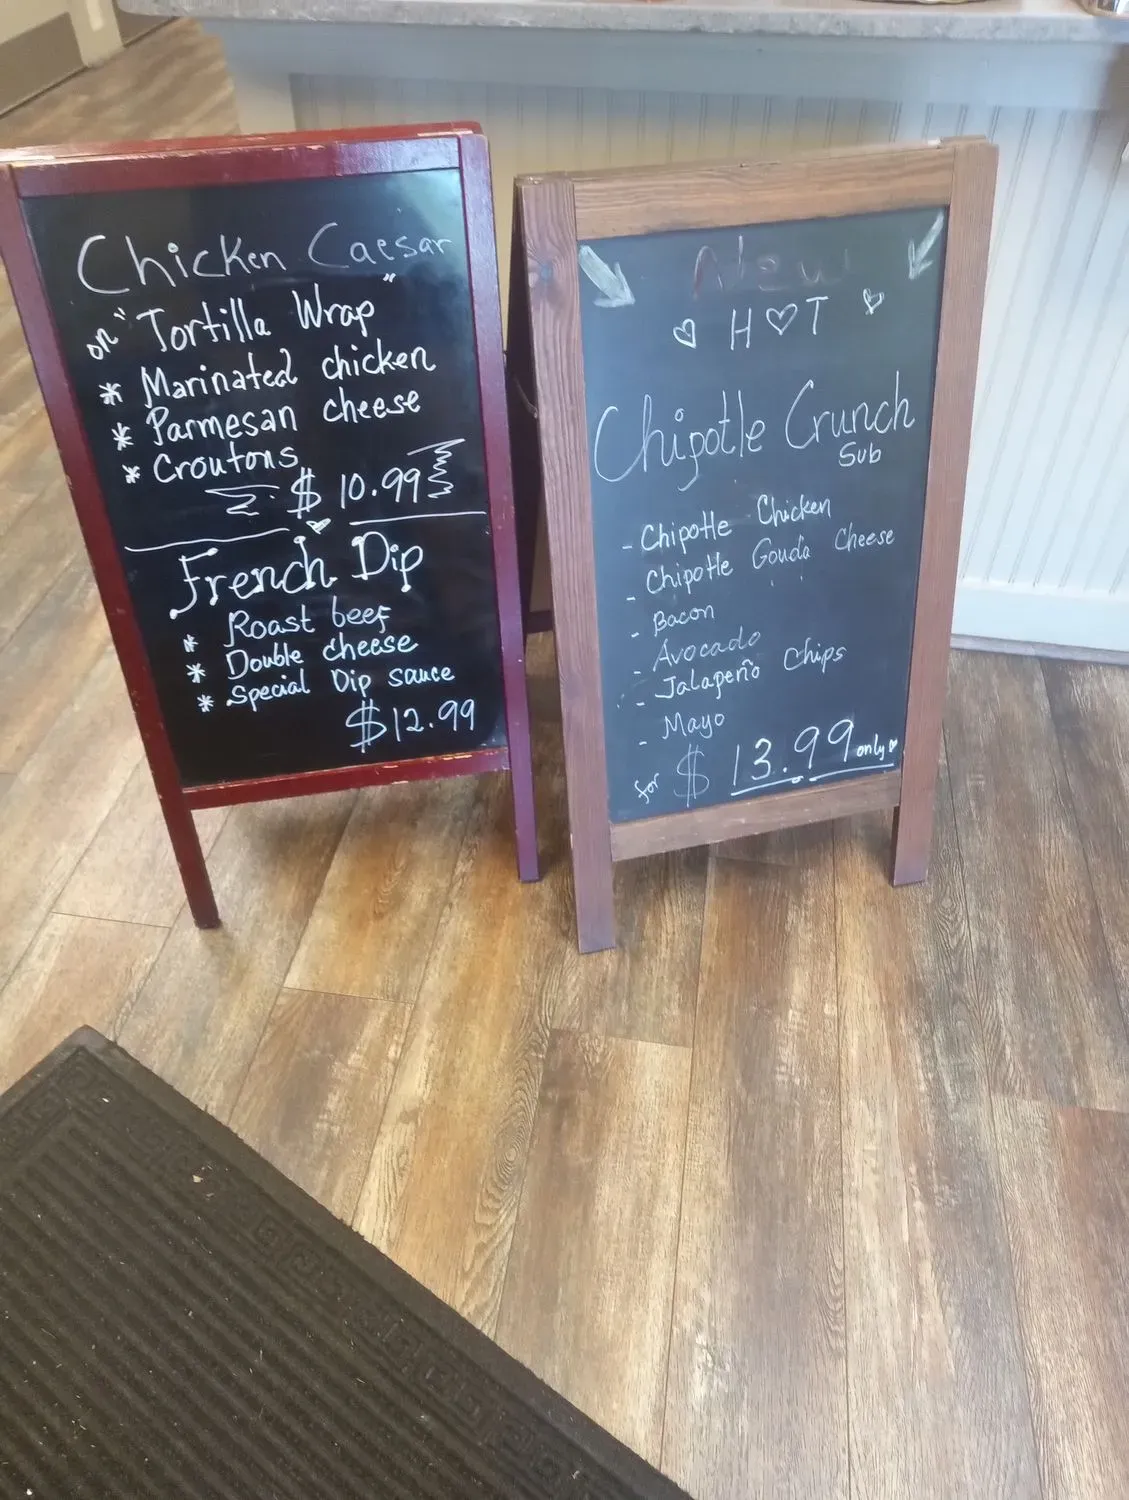 Chicken Caesar
on "Tortilla Wrap"
* Marinated chicken
* Parmesan cheese
* Croutons
$10.99
French Dip
* Roast beef
* Double cheese
* Special Dip sauce
$12.99
New
H♡T
Chipotle Crunch
Sub
- Chipotle Chicken
- Chipotle Gouda Cheese
- Bacon
- Avocado
- Jalapeño Chips
- Mayo
for $13.99 only